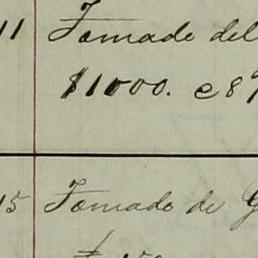 11 Tomado del
$1000. c 8%
15 Tomado de G